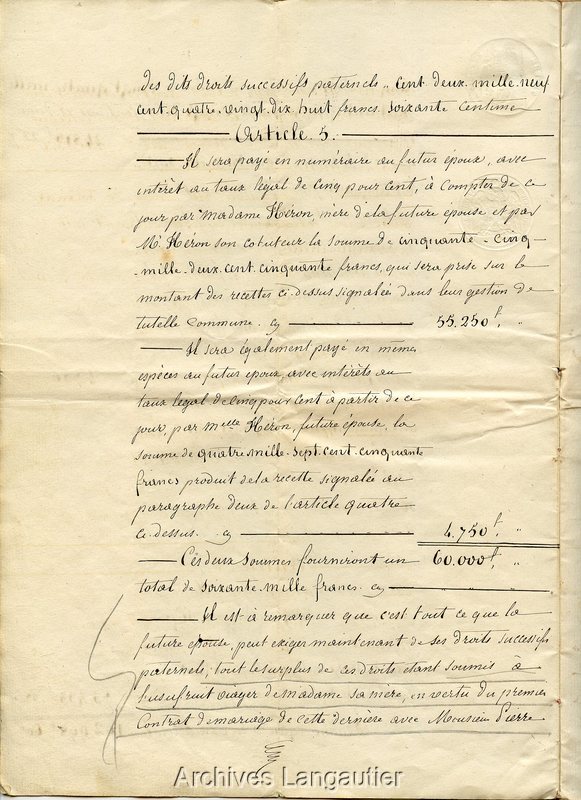 des dits droits successifs paternels, Cent. deux. mille. neuf
cent. quatre. vingt. dix. huit francs. soixante Centimes
Article. 5.
Il sera payé en numéraire au futur époux, avec
intérêt au taux légal de Cinq pour cent, à compter de ce
jour par Madame Héron, mère de la future épouse et par
Mr. Héron son cotuteur la somme de cinquante. cinq.
mille. deux. cent. cinquante francs, qui sera prise sur le
montant des recettes ci-dessus signalées dans leur gestion de
tutelle commune. 55.250f. "
Il sera également payé en mêmes
espèces au futur époux, avec intérêts au
taux légal de cinq pour Cent à partir de ce
jour, par Melle Héron, future épouse, la
somme de quatre. mille. sept. cent. cinquante
francs produit de la recette signalée au
paragraphe deux de l'article quatre
ci-dessus. 4.750f. "
Ces deux sommes fourniront un 60.000f. "
total de soixante. mille francs.
Il est à remarquer que c'est tout ce que la
future épouse, peut exiger maintenant de ses droits successifs
paternels, tout le surplus de ces droits étant soumis à
l'usufruit viager de madame sa mère, en vertu du premier
Contrat de mariage de cette dernière avec Monsieur Pierre
Archives Langautier